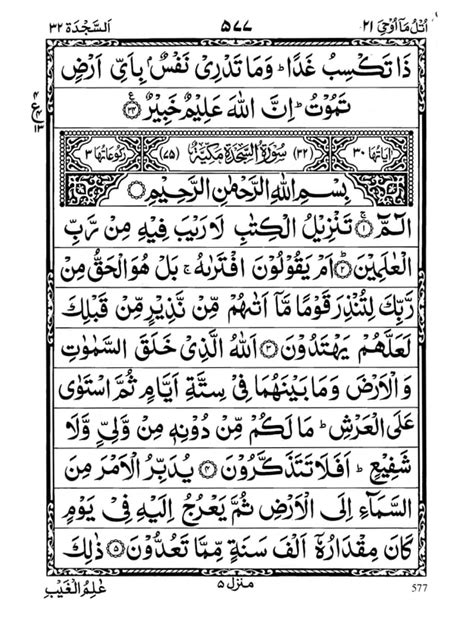 اُتْلُ مَاۤ اُوْحِیَ ۲۱ ۵۷۷ اَلسَّجْدَة ۳۲
ذَا تَكْسِبُ غَدًا ؕ وَمَا تَدْرِىْ نَفْسٌۢ بِاَىِّ اَرْضٍ
تَمُوْتُ ؕ اِنَّ اللّٰهَ عَلِيْمٌ خَبِيْرٌ ﴿۳۴﴾
ع ۴ ۴ ۱۳
اٰیَاتُهَا ۳۰ (۳۲) سُوْرَةُ السَّجْدَةِ مَكِّيَّةٌ (۷۵) رُكُوْعَاتُهَا ۳
بِسْمِ اللّٰهِ الرَّحْمٰنِ الرَّحِيْمِ
الٓمّٓ ﴿۱﴾ تَنْزِيْلُ الْكِتٰبِ لَا رَيْبَ فِيْهِ مِنْ رَّبِّ
الْعٰلَمِيْنَ ﴿۲﴾ اَمْ يَقُوْلُوْنَ افْتَرٰىهُ ۚ بَلْ هُوَ الْحَقُّ مِنْ
رَّبِّكَ لِتُنْذِرَ قَوْمًا مَّاۤ اَتٰىهُمْ مِّنْ نَّذِيْرٍ مِّنْ قَبْلِكَ
لَعَلَّهُمْ يَهْتَدُوْنَ ﴿۳﴾ اَللّٰهُ الَّذِىْ خَلَقَ السَّمٰوٰتِ
وَالْاَرْضَ وَمَا بَيْنَهُمَا فِىْ سِتَّةِ اَيَّامٍ ثُمَّ اسْتَوٰى
عَلَى الْعَرْشِ ؕ مَا لَكُمْ مِّنْ دُوْنِهٖ مِنْ وَّلِىٍّ وَّلَا
شَفِيْعٍ ؕ اَفَلَا تَتَذَكَّرُوْنَ ﴿۴﴾ يُدَبِّرُ الْاَمْرَ مِنَ
السَّمَآءِ اِلَى الْاَرْضِ ثُمَّ يَعْرُجُ اِلَيْهِ فِىْ يَوْمٍ
كَانَ مِقْدَارُهٗۤ اَلْفَ سَنَةٍ مِّمَّا تَعُدُّوْنَ ﴿۵﴾ ذٰلِكَ
577 منزل ۵ عٰلِمُ الْغَيْبِ